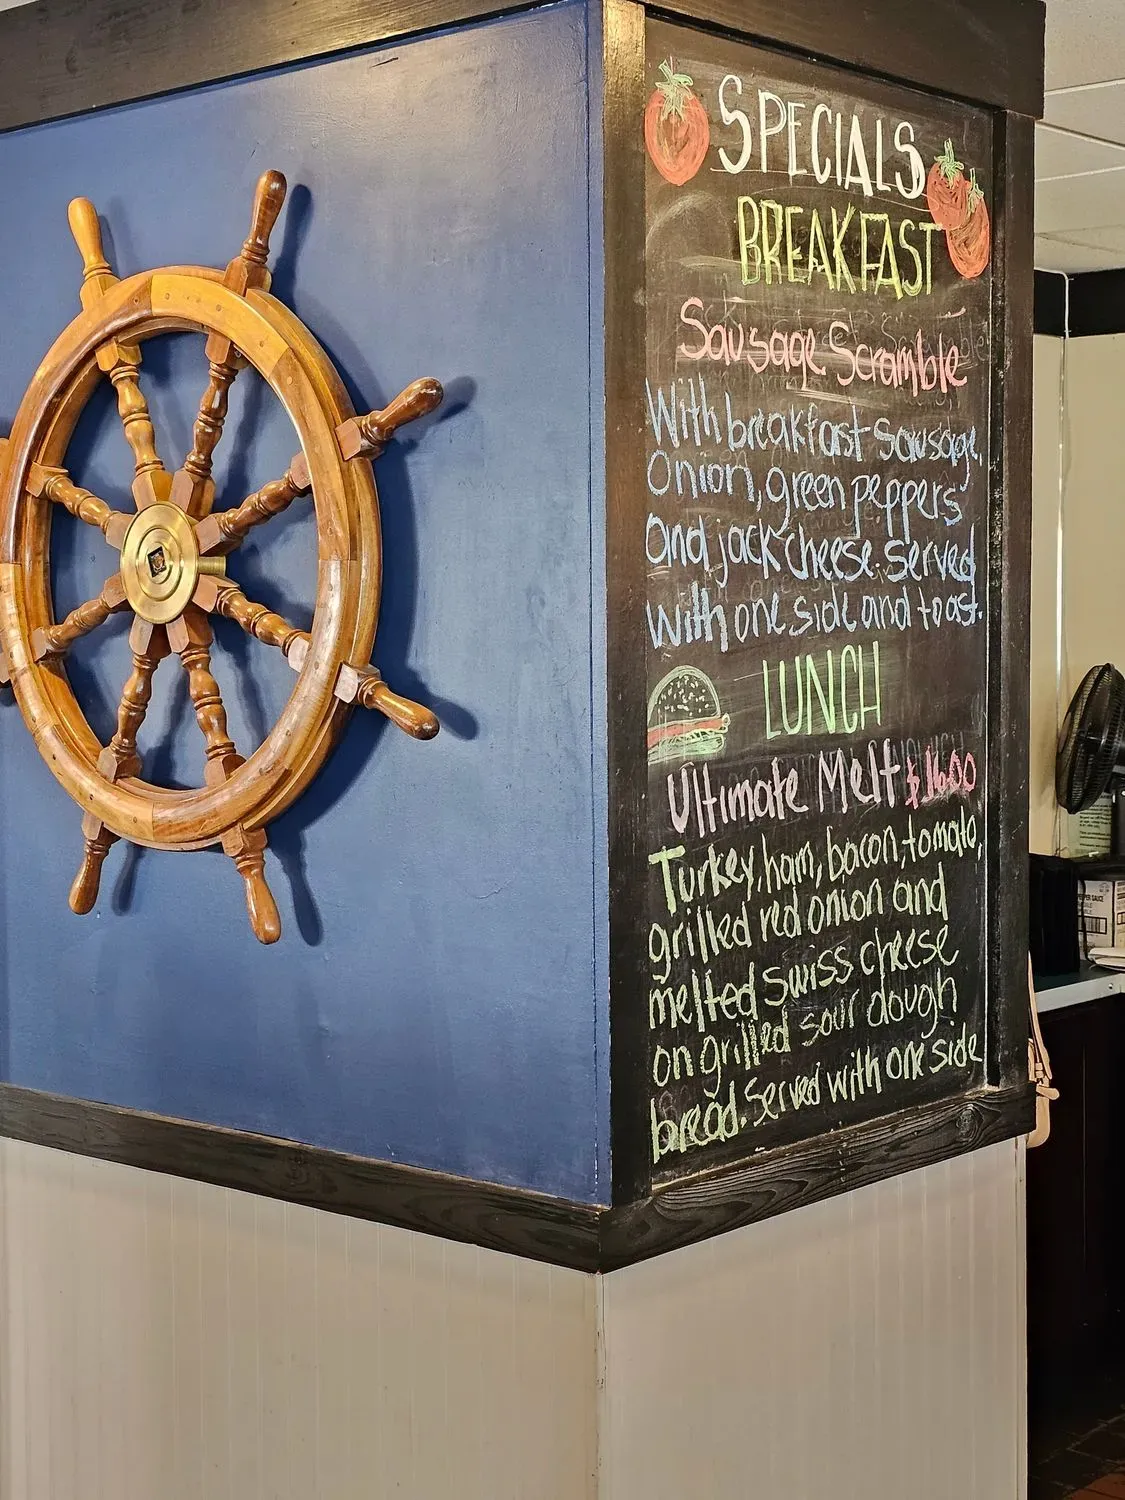 SPECIALS
BREAKFAST
Sausage Scramble
With breakfast sausage,
Onion, green peppers
and jack cheese. served
with one side and toast.
LUNCH
Ultimate Melt $16.00
Turkey, ham, bacon, tomato,
grilled red onion and
melted swiss cheese
on grilled sour dough
bread. Served with one side